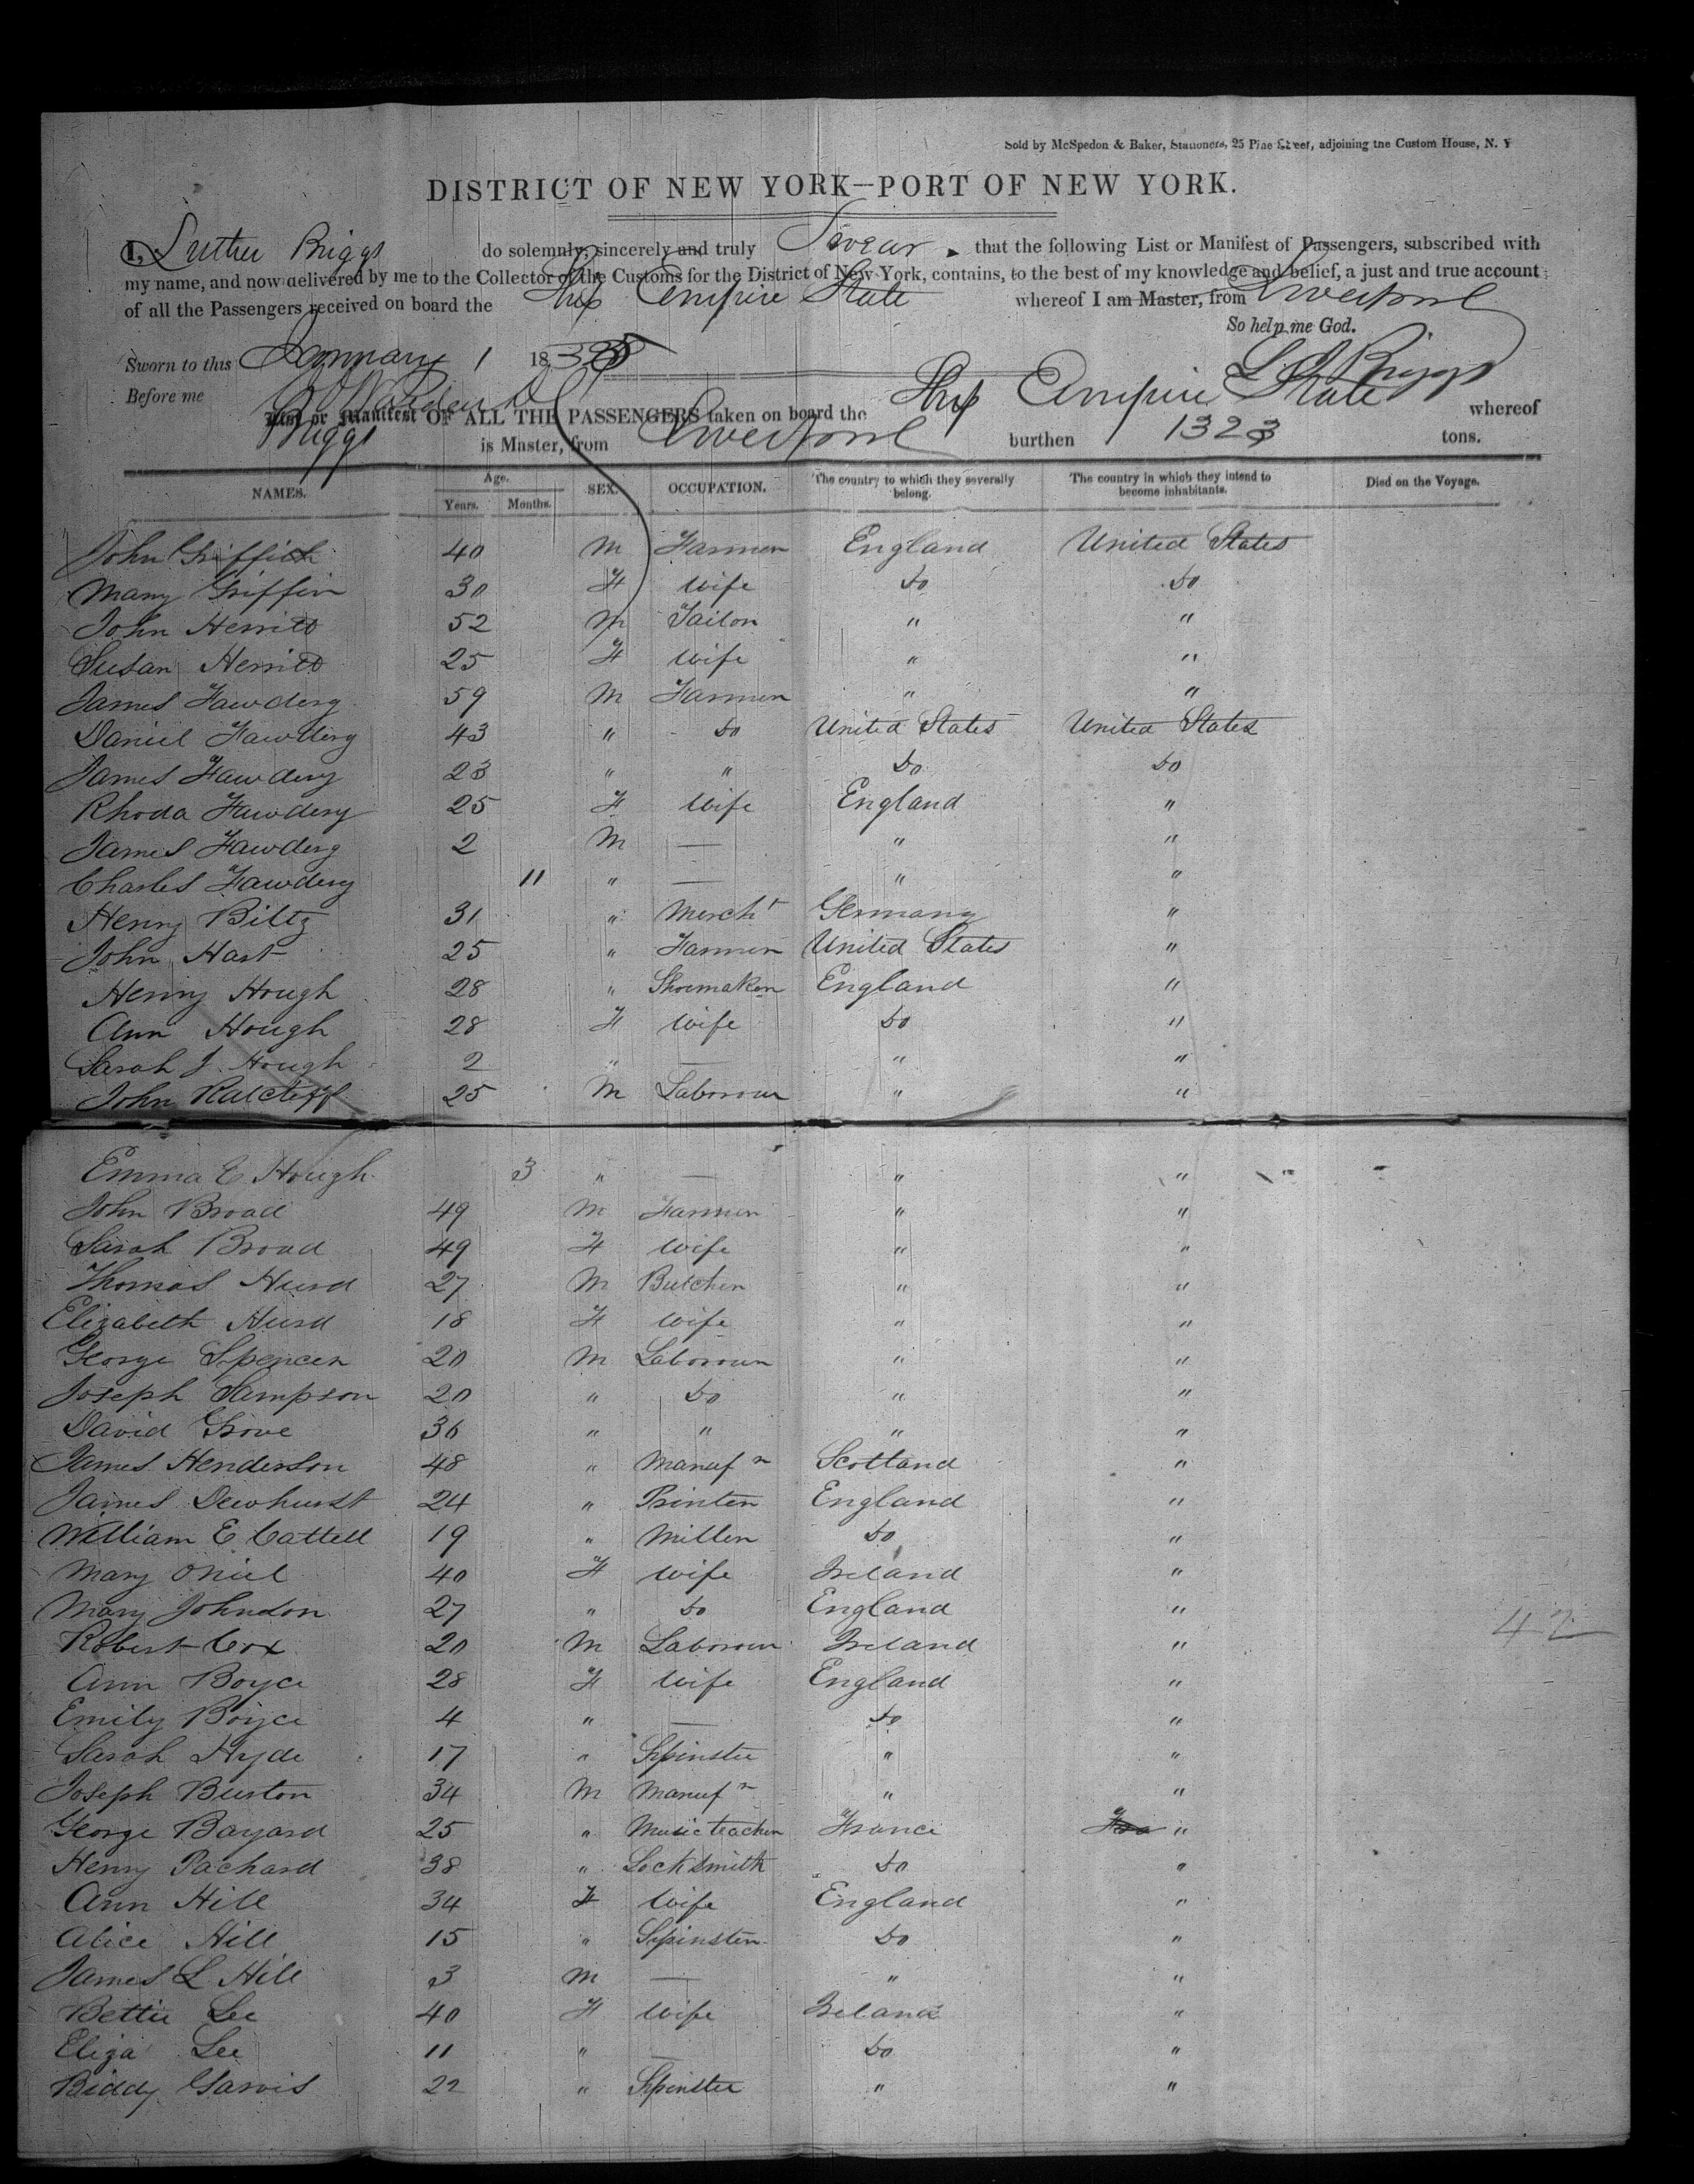 Sold by McSpedon & Baker, Stationers, 25 Pine Street, adjoining the Custom House, N. Y
DISTRICT OF NEW YORK—PORT OF NEW YORK.
I, Luther Briggs do solemnly, sincerely and truly Swear that the following List or Manifest of Passengers, subscribed with
my name, and now delivered by me to the Collector of the Customs for the District of New York, contains, to the best of my knowledge and belief, a just and true account
of all the Passengers received on board the Ship Empire State whereof I am Master, from Liverpool
So help me God.
Sworn to this January 1 18
L Briggs
Before me
List or Manifest OF ALL THE PASSENGERS taken on board the Ship Empire State whereof
Briggs is Master, from Liverpool burthen 1323 tons.
NAMES. Age. Years. Months. SEX. OCCUPATION. The country to which they severally belong. The country in which they intend to become inhabitants. Died on the Voyage.
John Griffith 40 M Farmer England United States
Mary Griffin 30 F Wife Do Do
John Herritt 52 M Tailor " "
Susan Herritt 25 F Wife " "
James Fawderg 59 M Farmer " "
Daniel Fawderg 43 " Do United States United States
James Fawderg 23 " " Do Do
Rhoda Fawderg 25 F Wife England "
James Fawderg 2 M — " "
Charles Fawderg 11 " — " "
Henry Biltz 31 " Mercht Germany "
John Hart 25 " Farmer United States "
Henry Hough 28 " Shoemaker England "
Ann Hough 28 F Wife Do "
Sarah J. Hough 2 " — " "
John Ratcliff 25 M Laborour " "
Emma E Hough 3 " — " "
John Broad 49 M Farmer " "
Sarah Broad 49 F Wife " "
Thomas Hurd 27 M Butcher " "
Elizabeth Hurd 18 F Wife " "
George Spencer 20 M Laborour " "
Joseph Sampson 20 " Do " "
David Grove 36 " " " "
James Henderson 48 " Manufr Scotland "
James Dewhurst 24 " Printer England "
William E Cattell 19 " Miller Do "
Mary Oniel 40 F Wife Ireland "
Mary Johndon 27 " Do England "
Robert Cox 20 M Laborour Ireland "
42
Ann Boyce 28 F Wife England "
Emily Boyce 4 " — Do "
Sarah Hyde 17 " Spinster " "
Joseph Burton 34 M Manufr " "
George Bayard 25 " Music teacher France "
Henry Pachard 38 " Locksmith Do "
Ann Hill 34 F Wife England "
Alice Hill 15 " Spinster Do "
James L Hill 3 M — " "
Bettie Lee 40 F Wife Ireland "
Eliza Lee 11 " — Do "
Biddy Garvis 22 " Spinster " "